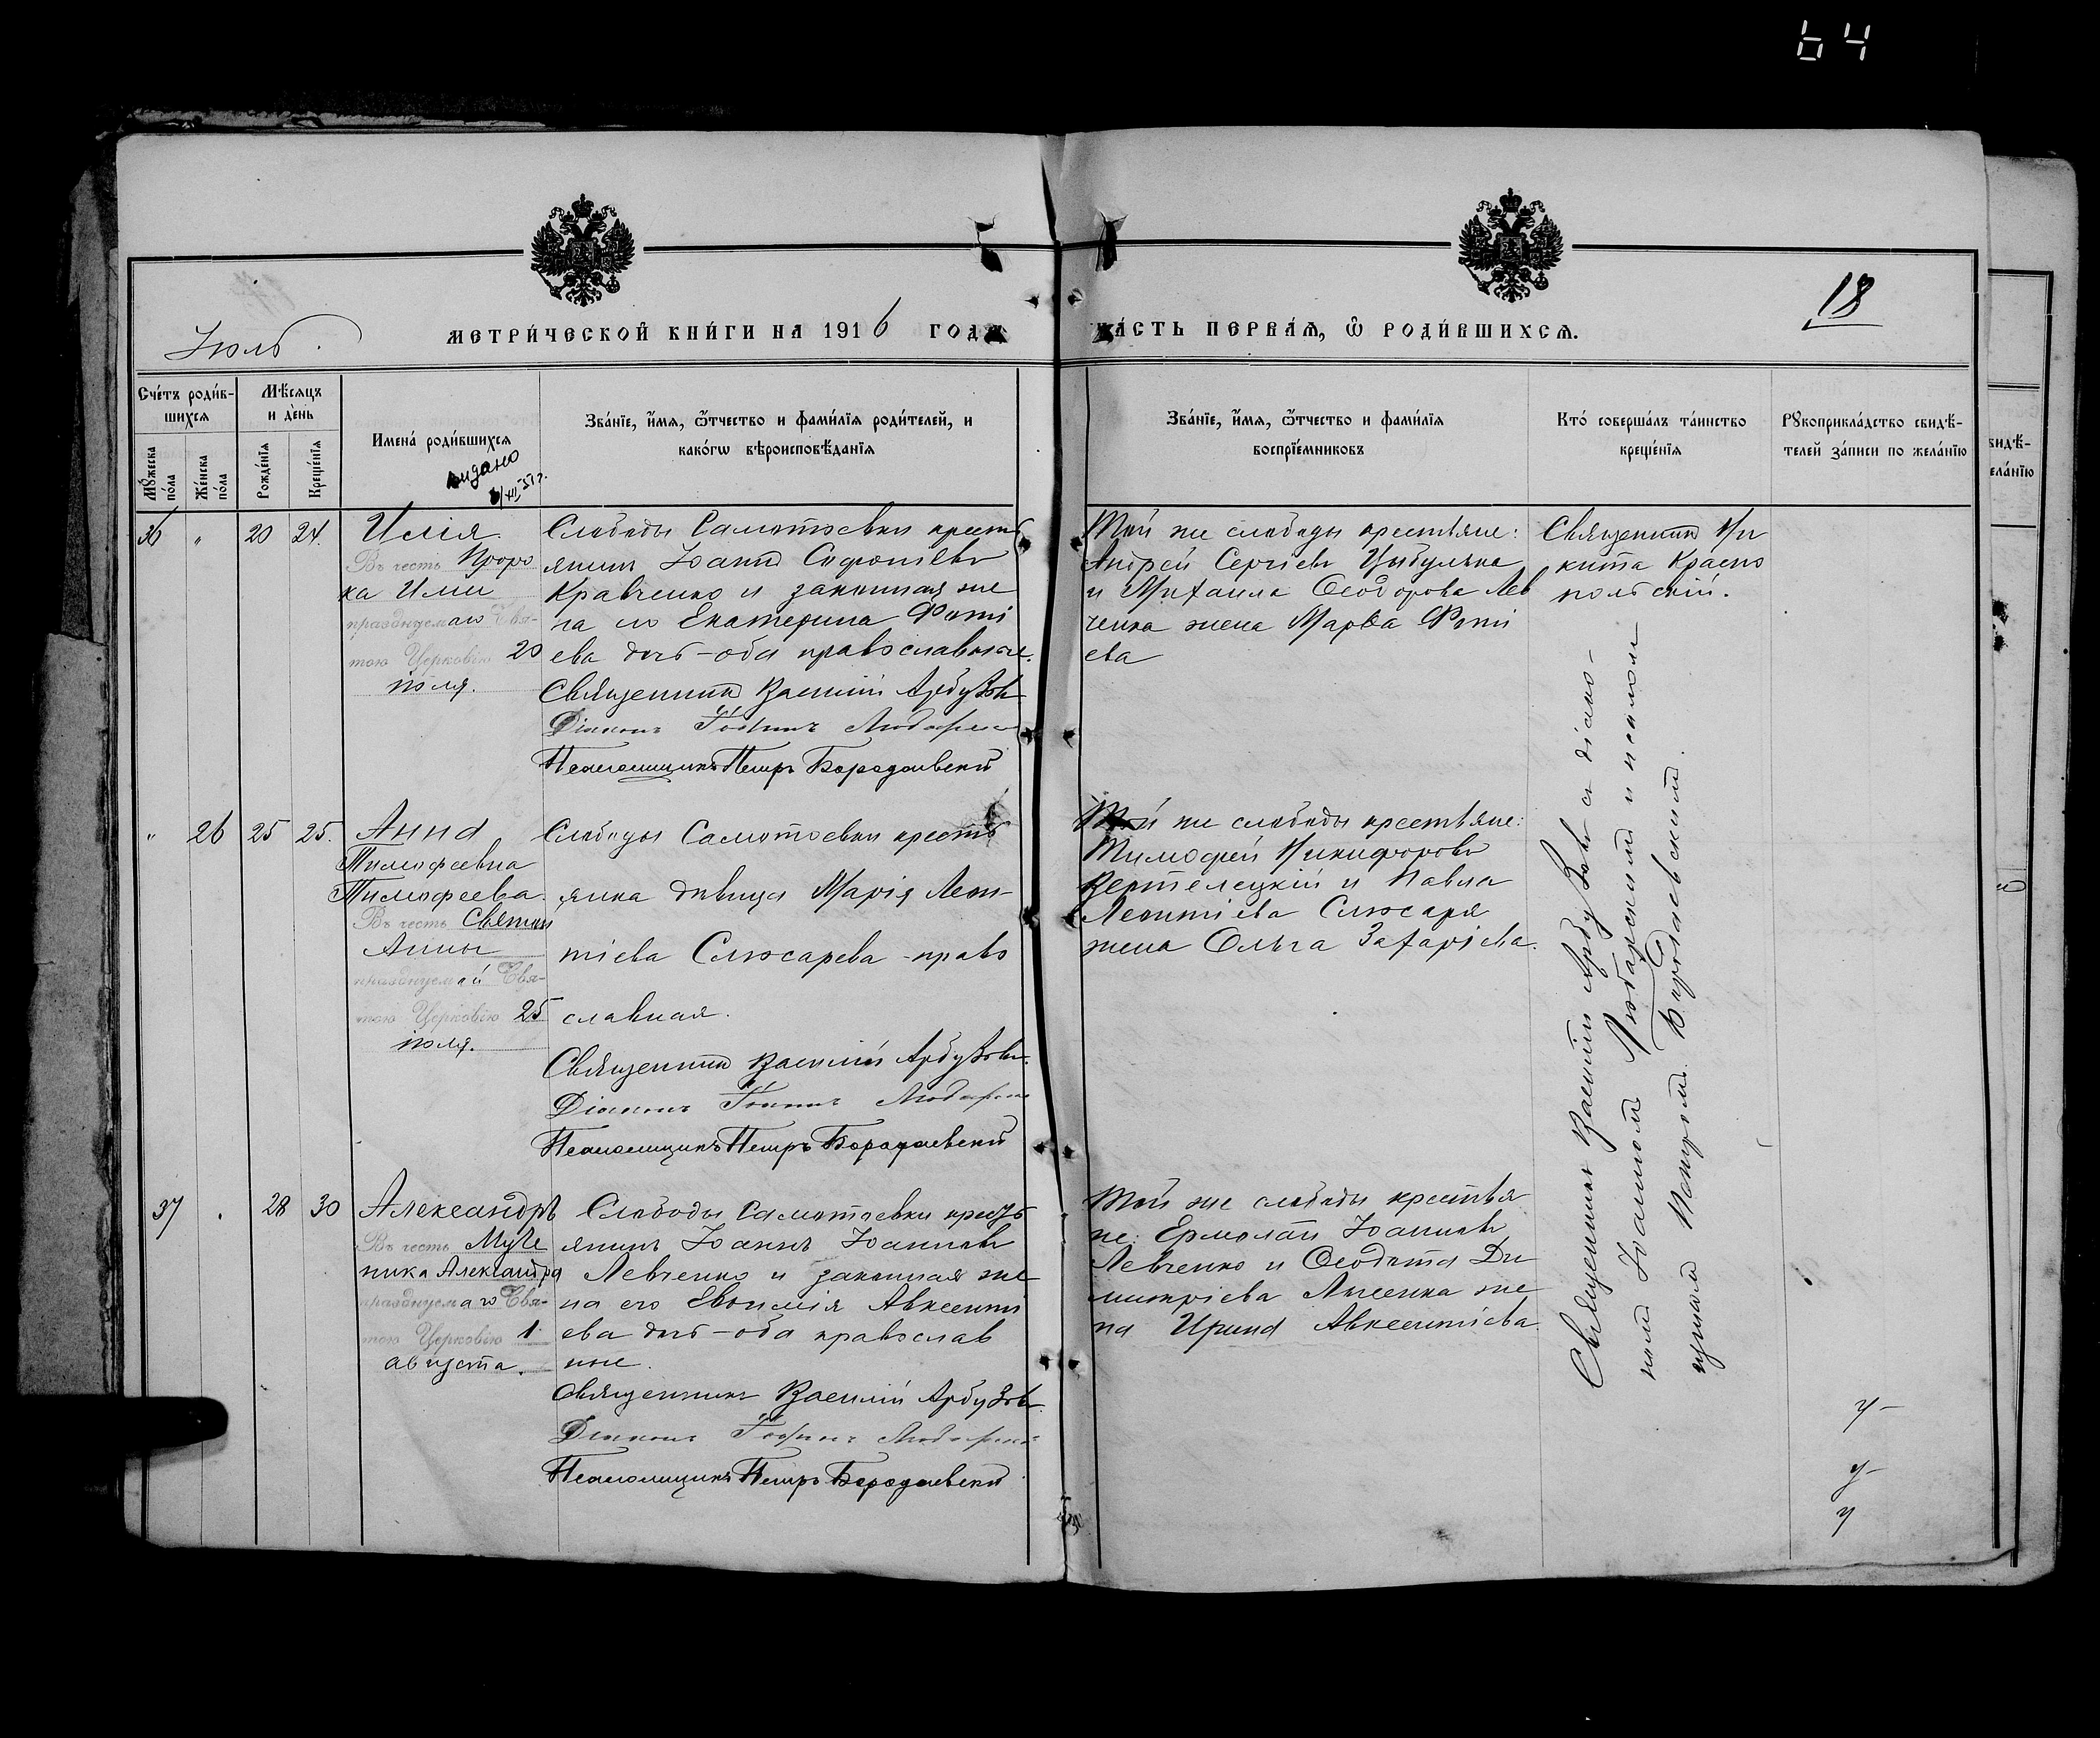 64
18
Іюль.
МЕТРИ́ЧЕСКОЙ КНИ́ГИ НА 1916 ГОДЪ
ЧА́СТЬ ПЕРВА́Я, Ѡ҆ РОДИ́ВШИХСЯ.
Сче́тъ роди́в-
шихся
Мѣ́сяцъ
и де́нь
Имена̀ роди́вшихся
Зва́нїе, и҆́мя, ѻ҆́тчество и фами́лїя роди́телей, и
како́гѡ вѣроисповѣ́данїя
Мꙋ́жеска
по́ла
Же́нска
по́ла
Рожде́нїя
Креще́нїя
Зва́нїе, и҆́мя, ѻ҆́тчество и фами́лїя
воспрїе́мниковъ
Кто́ соверша́лъ та́инство
креще́нїя
Рꙋкоприкла́дство свидѣ́-
телей за́писи по жела́нїю
видано
36 „ 20 24.
Илія.
Въ честь Проро
ка Иліи
празднуемаго Свя-
тою Церковію 20
іюля.
Слободы Самотоевки кресть
янинъ Іоаннъ Софоніевъ
Кравченко и законная же
на его Екатерина Фоти
ева дочь - оба православные.
Священникъ Василій Арбузовъ
Діаконъ Іоаннъ Любарскій
Псаломщикъ Петръ Бородаевскій
Той же слободы крестьяне:
Андрей Сергіевъ Цыбулька
и Михаила Ѳеодорова Лев
ченка жена Марѳа Фоті
ева
Священникъ Ни
кита Красно
польскій.
„ 26 25 25.
Анна
Тимофеевна
Тимофеева
Въ честь Святой
Анны
празднуемой Свя-
тою Церковію 25
іюля.
Слободы Самотоевки кресть
янка дѣвица Марія Леон-
тіева Слюсарева - право
славная.
Священникъ Василій Арбузовъ.
Діаконъ Іоаннъ Любарскій
Псаломщикъ Петръ Бородаевскій
Той же слободы крестьяне:
Тимофей Никифоровъ
Вертелецкій и Павла
Леонтіева Слюсаря
жена Ольга Захаріева.
Священникъ Василій Арбузовъ съ діако-
номъ Іоанномъ Любарскимъ и псалом
щикомъ Петромъ Бородаевскимъ.
37 . 28 30
Александръ
Въ честь Муче
ника Александра
празднуемаго Свя-
тою Церковію 1
августа.
Слободы Самотоевки кресть
янинъ Іоаннъ Іоанновъ
Левченко и законная же
на его Евѳимія Авксенти
ева дочь - оба православ
ные.
Священникъ Василій Арбузовъ.
Діаконъ Іоаннъ Любарскій
Псаломщикъ Петръ Бородаевскій
Той же слободы крестья
не: Ермолай Іоанновъ
Левченко и Ѳеодота Ди
митріева Лысенка же
на Ирина Авксентіева
у-
у-
у